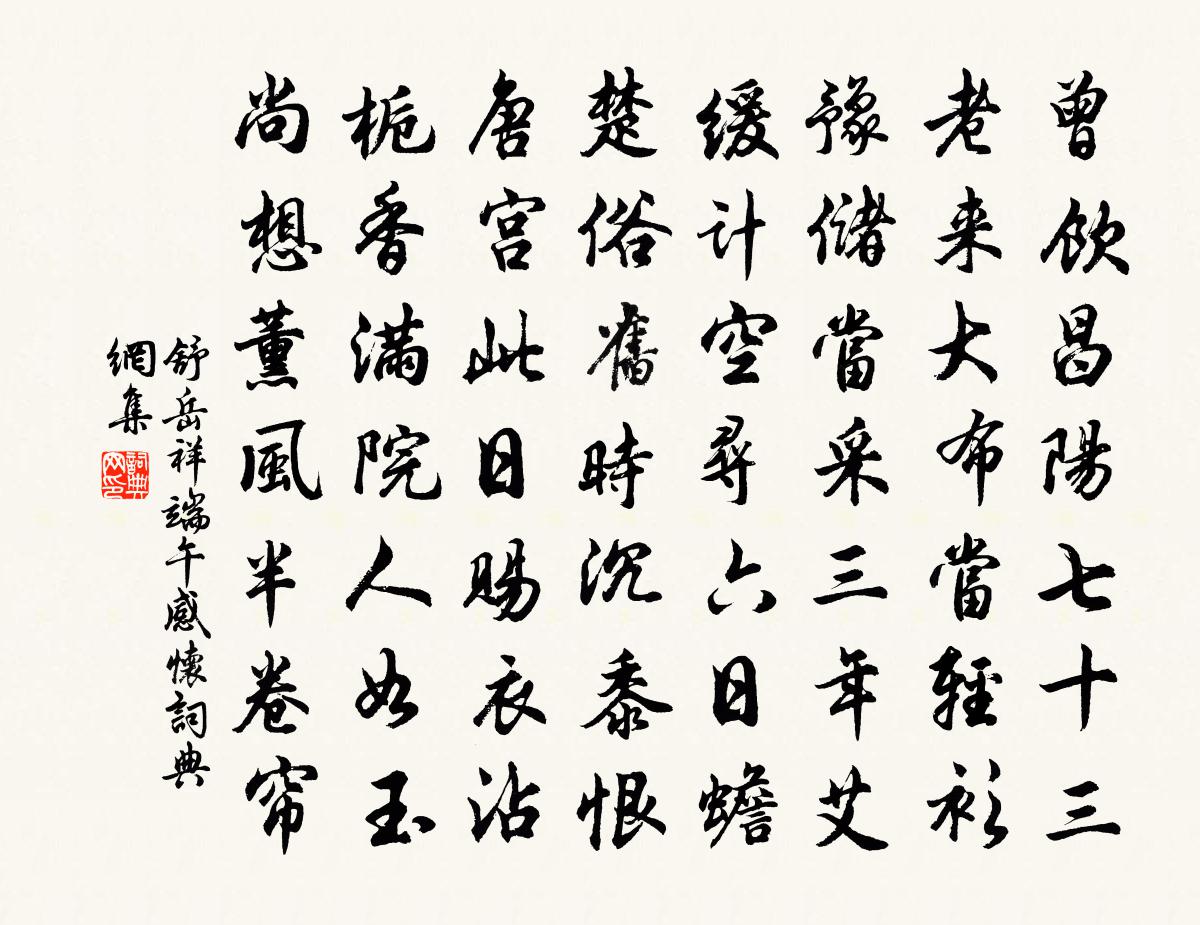 曾飲昌陽七十三
老来大布當輕衫
豫儲當采三年艾
緩計空尋六日蟾
楚俗舊時沉黍恨
唐宮此日賜衣沾
栀香滿院人如玉
尚想薰風半卷帘
舒岳祥端午感懷詞典
網集
詞典
网印